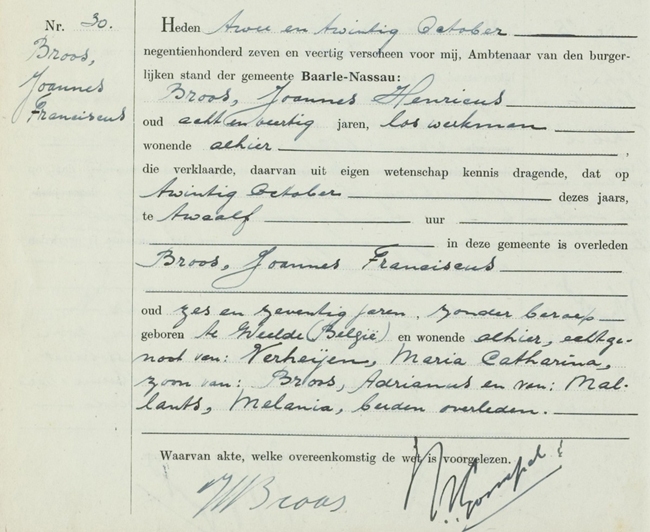 Nr. 30.
Broos,
Joannes
Franciscus
Heden twee en twintig October
negentienhonderd zeven en veertig verscheen voor mij, Ambtenaar van den burger-
lijken stand der gemeente Baarle-Nassau:
Broos, Joannes Henricus
oud acht en veertig jaren, los werkman
wonende alhier ,
die verklaarde, daarvan uit eigen wetenschap kennis dragende, dat op
twintig October dezes jaars,
te twaalf uur
in deze gemeente is overleden
Broos, Joannes Franciscus
oud zes en zeventig jaren, zonder beroep
geboren te Weelde (België) en wonende alhier, echtge-
noot van: Verheijen, Maria Catharina,
zoon van: Broos, Adrianus en van: Mal-
lants, Melania, beiden overleden.
Waarvan akte, welke overeenkomstig de wet is voorgelezen.
JH Broos